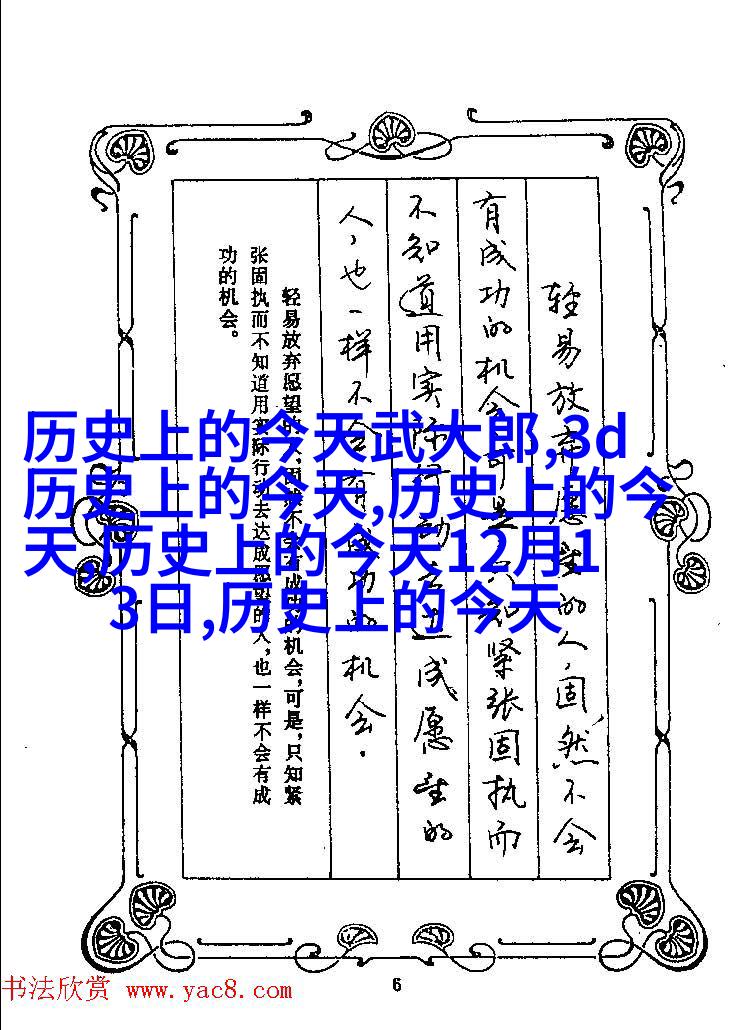 历史上的今天武大郎,3d
历史上的今天,历史上的今
天,历史上的今天12月1
3日,历史上的今天
轻易放弃愿望的人,固然不会
有成功的机会,可是,只知紧张固执而
不知道用实际行动去达成愿望的
人,也一样不会有成功的机会.
轻易放弃愿望的人,固然不会有成功的机会,可是,只知紧
张固执而不知道用实际行动去达成愿望的人,也一样不会有成
功的机会。
书法欣赏 www.yac8.com
6